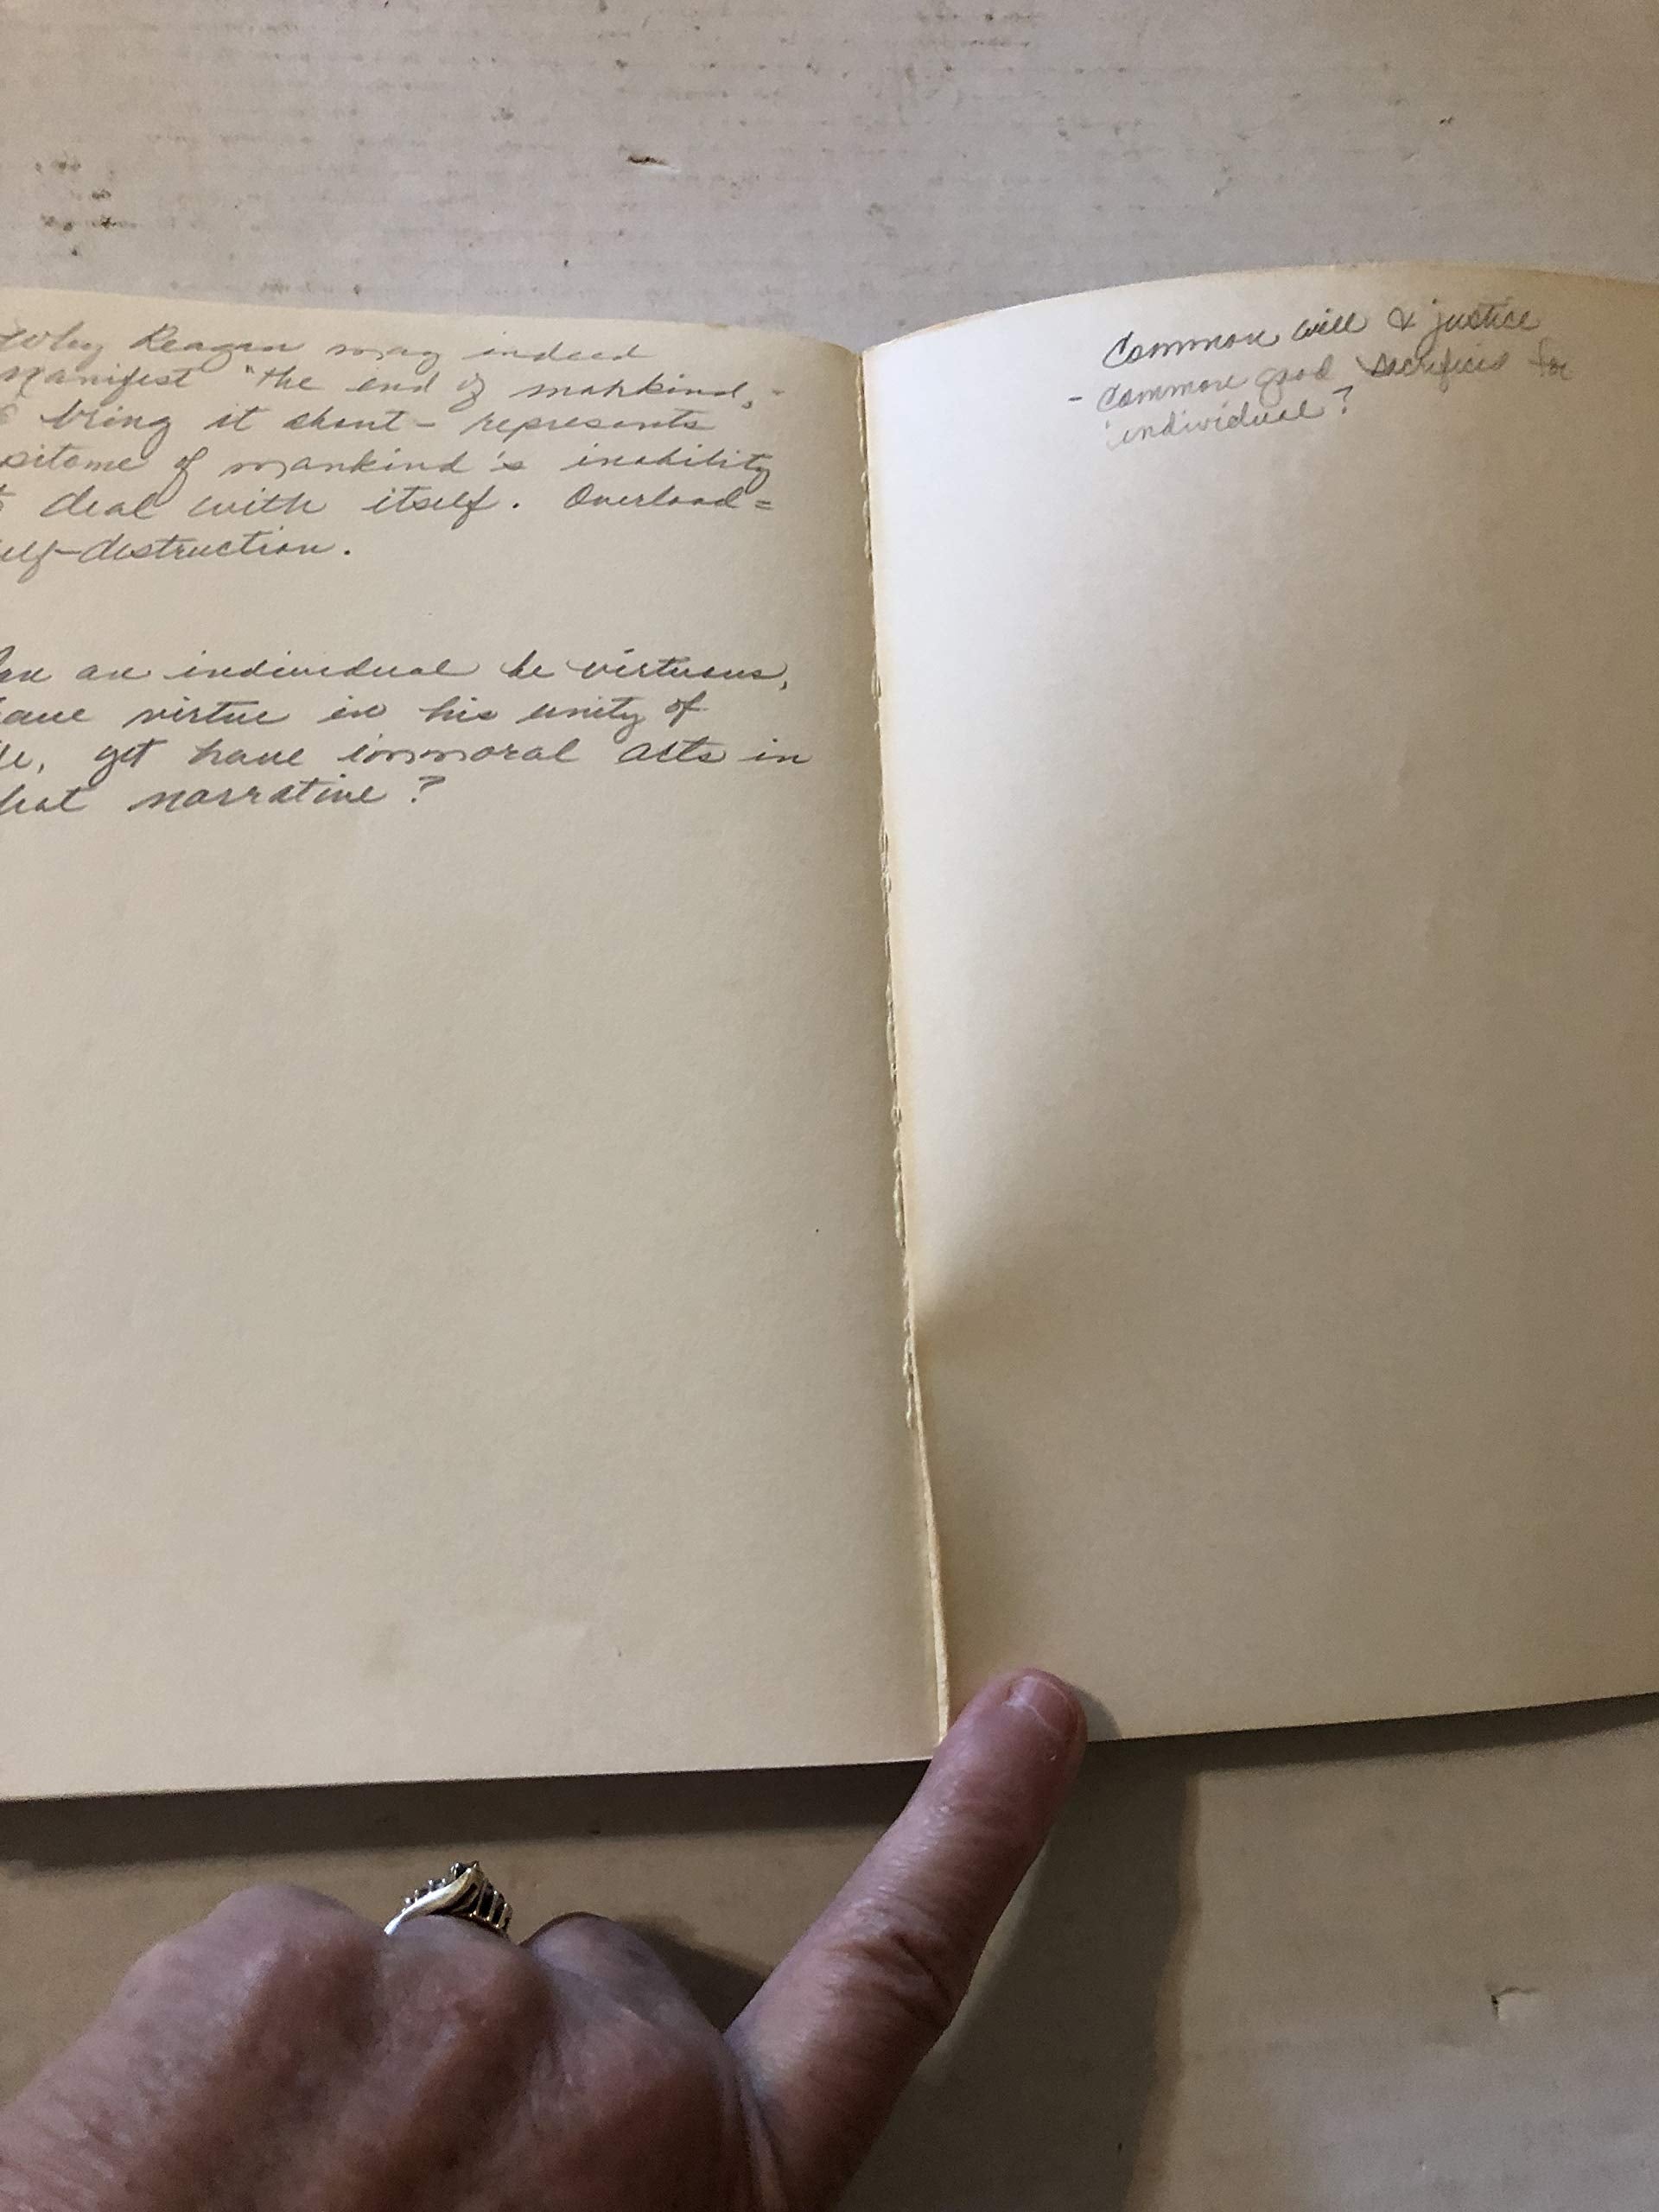 Why Reagan may indeed
manifest "the end of mankind,-
& bring it about - represents
pitome of mankind's inability
deal with itself. Overload =
elf-destruction.
an an individual be virtuous,
ave virtue in his unity of
, yet have immoral acts in
hat narrative?
Common will & justice
- common good sacrificed for
individual?